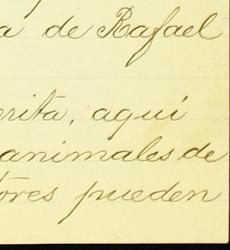 a de Rafael
erita, aquí
animales de
tores pueden